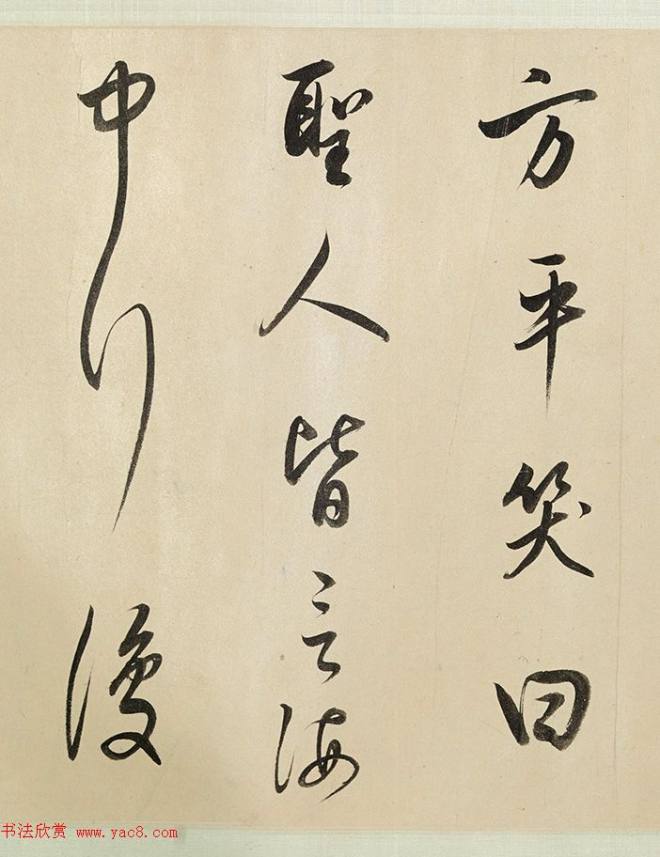 方平笑曰
聖人皆言海
中行復
书法欣赏 www.yac8.com